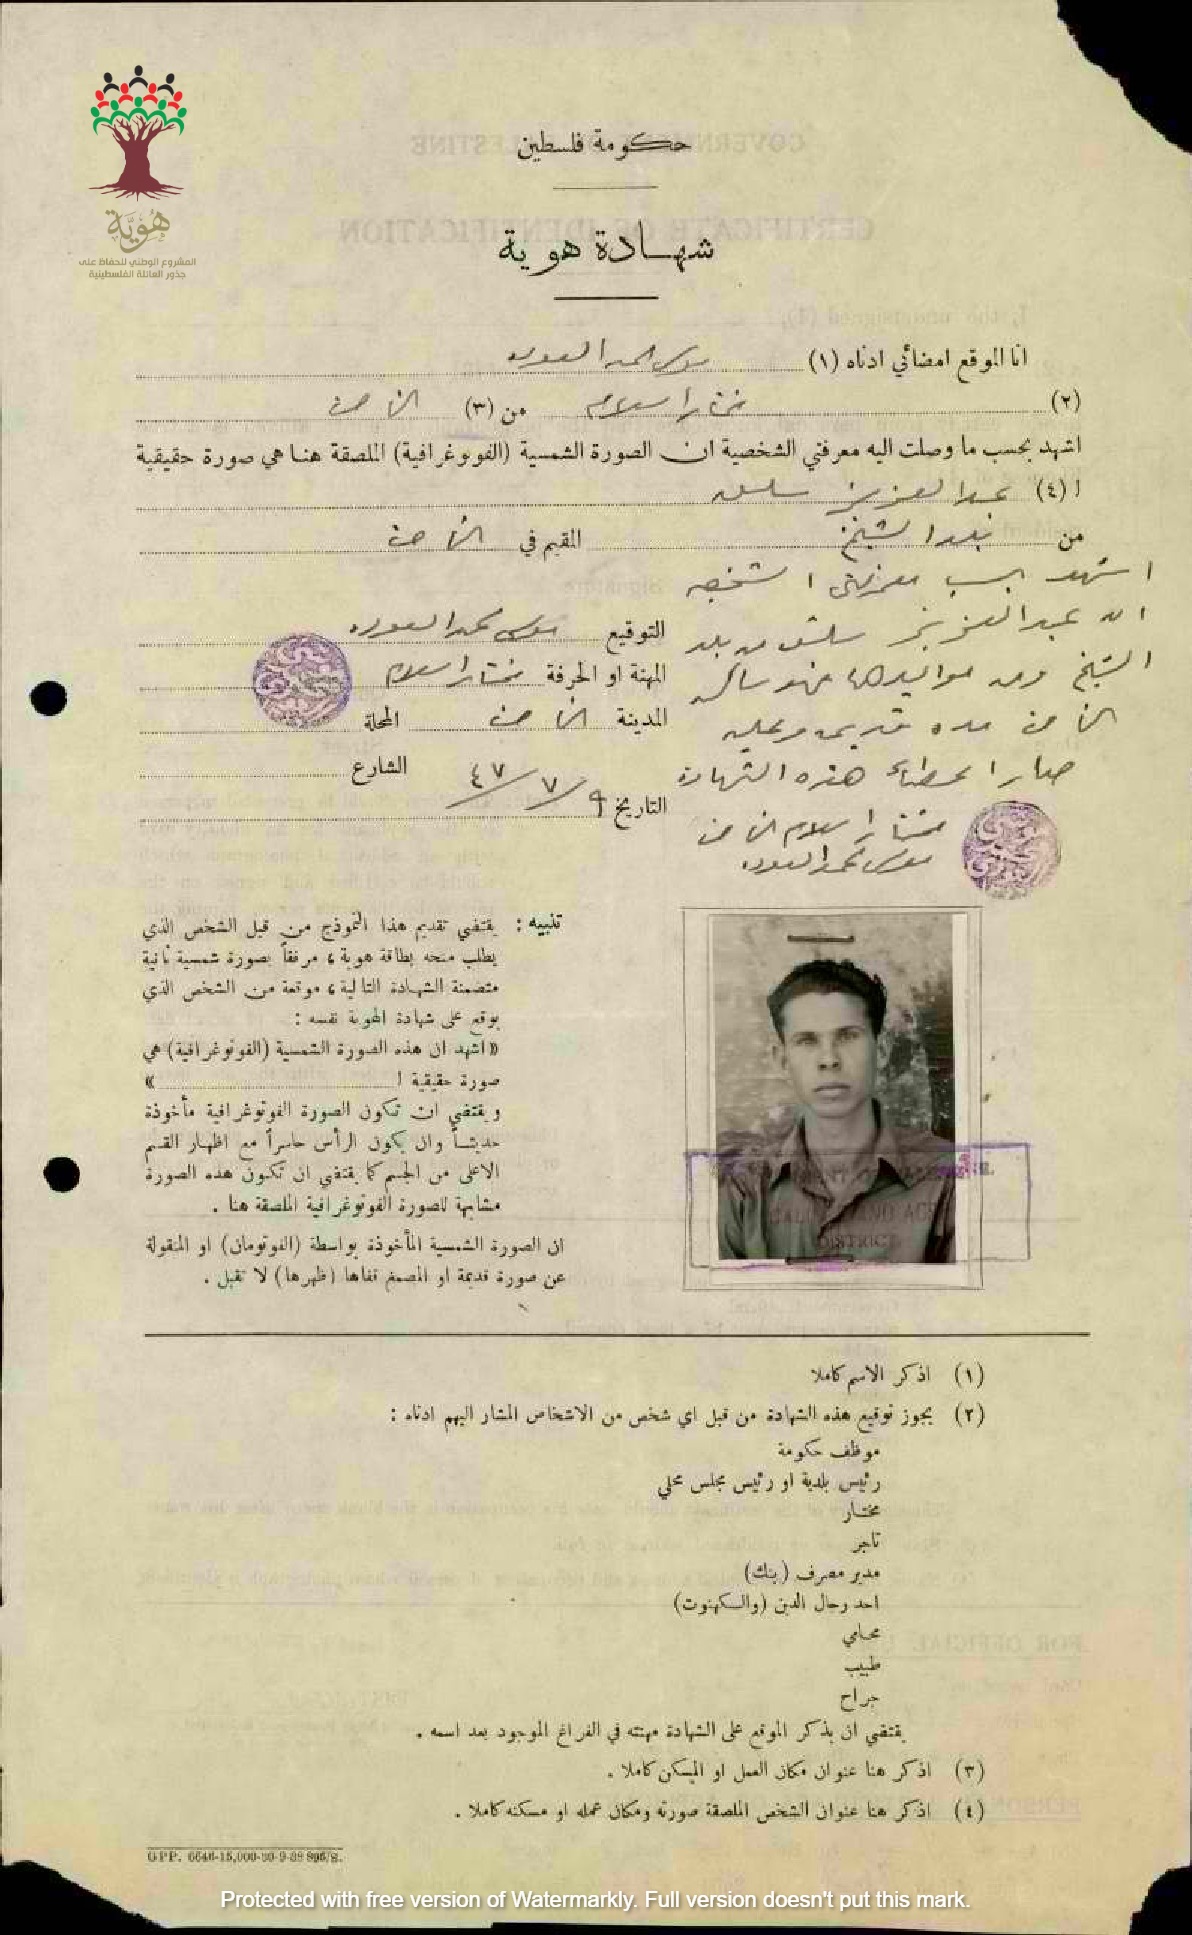 هُوِيَّة
المشروع الوطني للحفاظ على
جذور العائلة الفلسطينية
حكومة فلسطين
شهادة هوية
انا الموقع امضائي ادناه (١) موسى المحمد العوده
(٢) مختار اسلام من (٣) الناصره
اشهد بحسب ما وصلت اليه معرفتي الشخصية ان الصورة الشمسية (الفوتوغرافية) الملصقة هنا هي صورة حقيقية
ا (٤) عبد العزيز
من بلد الشيخ المقيم في الناصره
اشهد بحسب معرفتي الشخصيه
ان عبد العزيز من بلد
الشيخ ومن مواليدها
الناصره مده
صار اعطاء هذه الشهادة
مختار اسلام الناصره
موسى محمد العوده
التوقيع موسى محمد العوده
المهنة او الحرفة مختار اسلام
المدينة الناصره المحلة
الشارع
التاريخ ٩/٧/٤٧
تنبيه : يقتضي تقديم هذا النموذج من قبل الشخص الذي
يطلب منحه بطاقة هوية ، مرفقاً بصورة شمسية ثانية
متضمنة الشهادة التالية ، موقعة من الشخص الذي
يوقع على شهادة الهوية نفسه :
« اشهد ان هذه الصورة الشمسية (الفوتوغرافية) هي
صورة حقيقية ا »
ويقتضي ان تكون الصورة الفوتوغرافية مأخوذة
حديثاً وان يكون الرأس حاسراً مع اظهار القسم
الاعلى من الجسم كما يقتضي ان تكون هذه الصورة
مشابهة للصورة الفوتوغرافية الملصقة هنا .
ان الصورة الشمسية المأخوذة بواسطة (الفوتومان) او المنقولة
عن صورة قديمة او المصمغ قفاها (ظهرها) لا تقبل .
DISTRICT
(١) اذكر الاسم كاملا
(٢) يجوز توقيع هذه الشهادة من قبل اي شخص من الاشخاص المشار اليهم ادناه :
موظف حكومة
رئيس بلدية او رئيس مجلس محلي
مختار
تاجر
مدير مصرف (بنك)
احد رجال الدين (والكهنوت)
محامي
طبيب
جراح
يقتضي ان يذكر الموقع على الشهادة مهنته في الفراغ الموجود بعد اسمه .
(٣) اذكر هنا عنوان مكان العمل او المسكن كاملا .
(٤) اذكر هنا عنوان الشخص الملصقة صورته ومكان عمله او مسكنه كاملا .
GPP. 6646-15,000-30-9-38 896/S.
Protected with free version of Watermarkly. Full version doesn't put this mark.